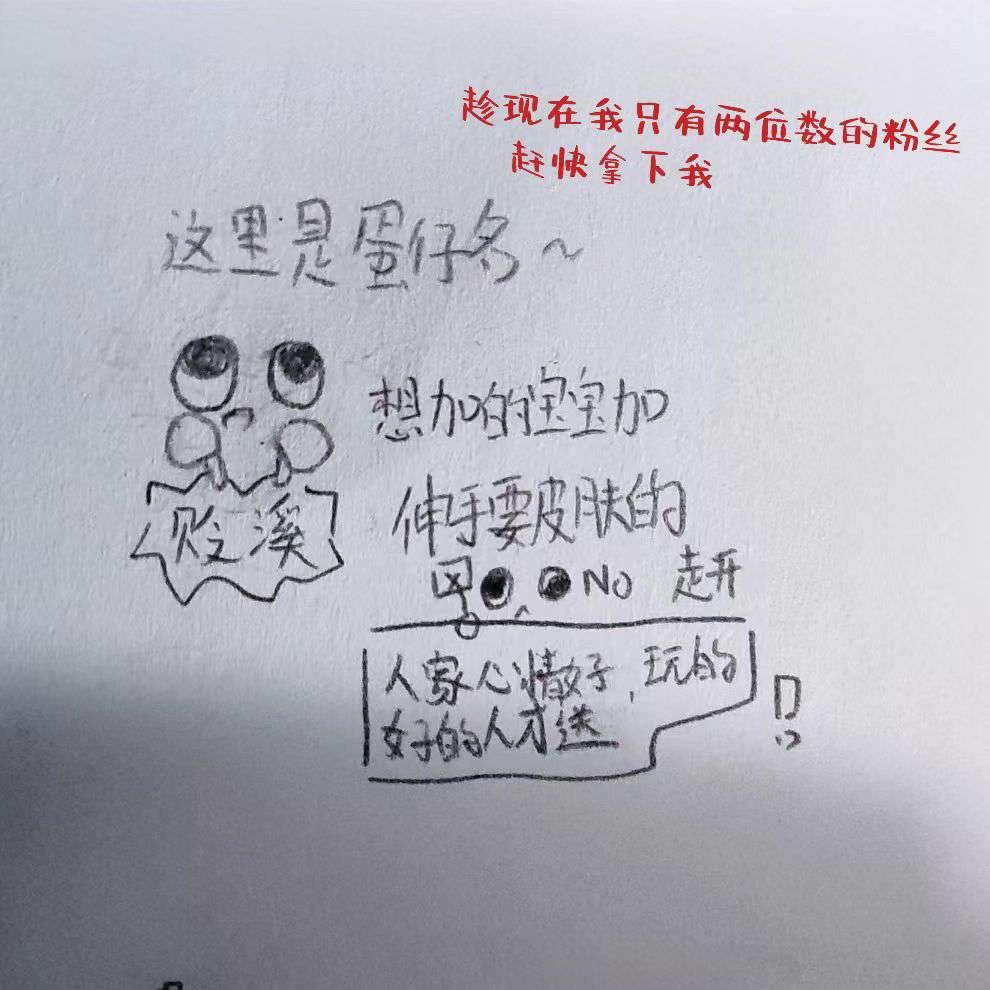 趁现在我只有两位数的粉丝
赶快拿下我
这里是蛋仔名~
想加的宝宝加
贬溪
伸手要皮肤的
NO 走开
人家心情好,玩的
好的人才送